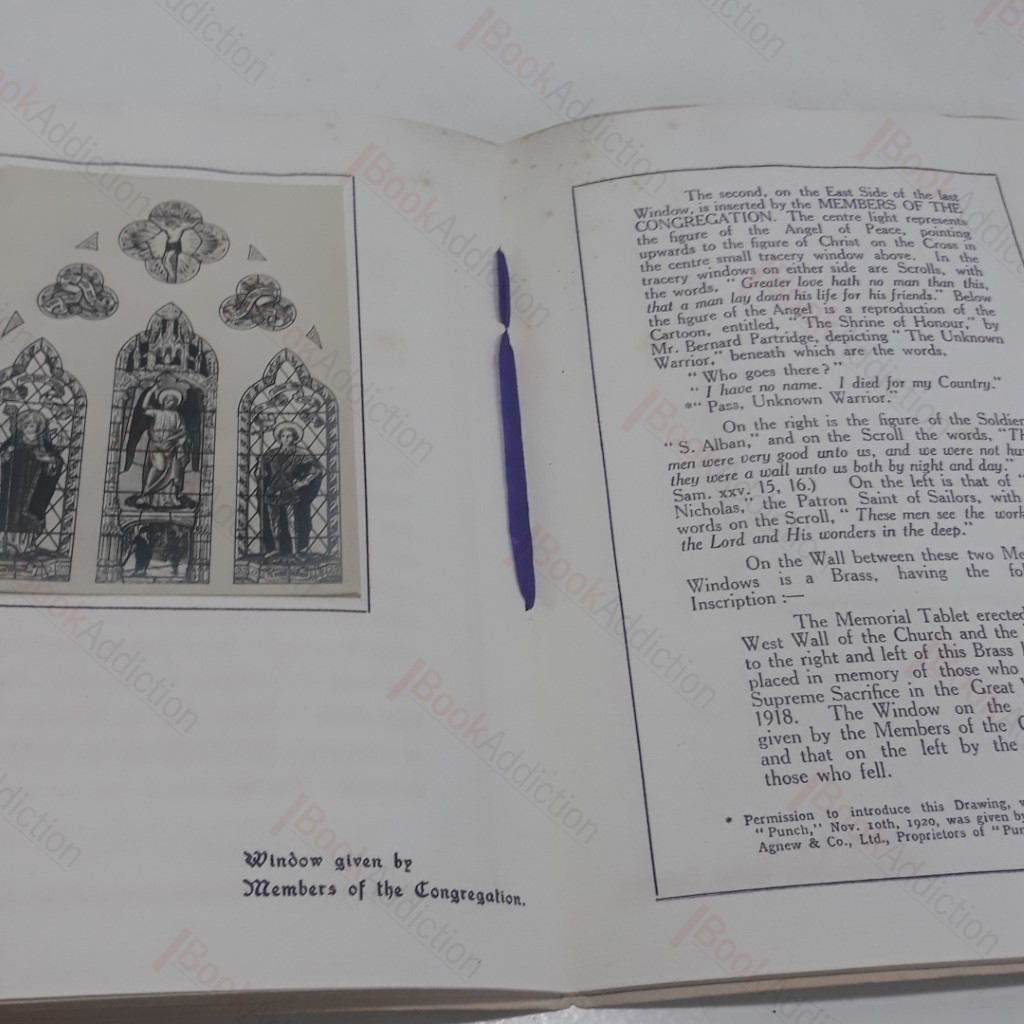 Window given by
Members of the Congregation.
The second, on the East Side of the last
Window, is inserted by the MEMBERS OF THE
CONGREGATION. The centre light represents
the figure of the Angel of Peace, pointing
upwards to the figure of Christ on the Cross in
the centre small tracery window above. In the
tracery windows on either side are Scrolls, with
the words, "Greater love hath no man than this,
that a man lay down his life for his friends." Below
the figure of the Angel is a reproduction of the
Cartoon, entitled, "The Shrine of Honour," by
Mr. Bernard Partridge, depicting "The Unknown
Warrior," beneath which are the words,
"Who goes there?"
"I have no name. I died for my Country."
*"Pass, Unknown Warrior."
On the right is the figure of the Soldier
"S. Alban," and on the Scroll the words,
men were very good unto us, and we were not
they were a wall unto us both by night and day."
Sam. xxv. 15, 16.) On the left is that of
Nicholas," the Patron Saint of Sailors, with
words on the Scroll, "These men see the
the Lord and His wonders in the deep."
On the Wall between these two
Windows is a Brass, having the
Inscription :—
The Memorial Tablet erected
West Wall of the Church and the
to the right and left of this Brass
placed in memory of those who
Supreme Sacrifice in the Great
1918. The Window on the
given by the Members of the
and that on the left by the
those who fell.
* Permission to introduce this Drawing,
"Punch," Nov. 10th, 1920, was given by
Agnew & Co., Ltd., Proprietors of
BookAddiction